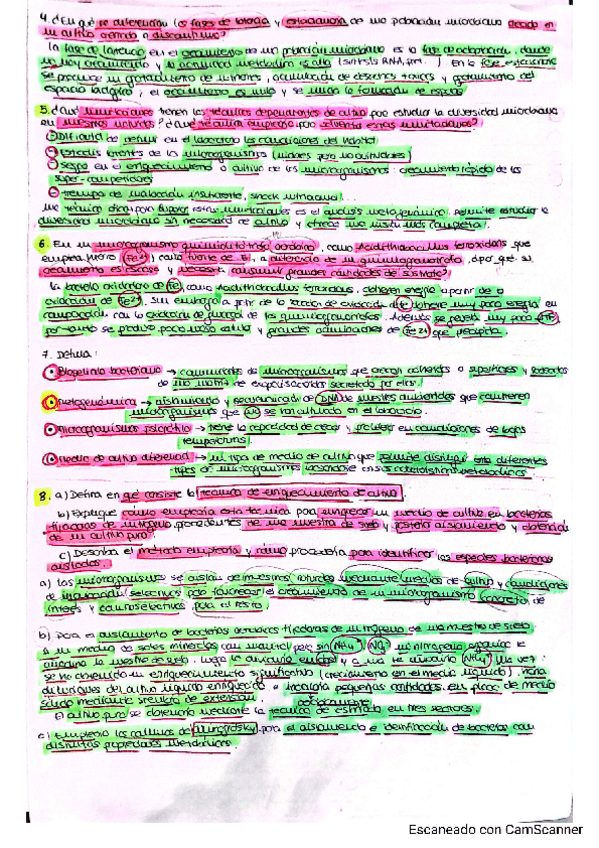 4. ¿En qué se diferencian las fases de latencia y estacionaria de una población microbiana en
un cultivo cerrado o discontinuo?
La fase de latencia en el crecimiento de una población microbiana es la fase de adaptación, donde
no hay crecimiento y la actividad metabólica es alta (síntesis RNA, ). En la fase estacionaria
se produce un agotamiento de nutrientes, acumulación de desechos tóxicos y agotamiento del
espacio biológico, el crecimiento es nulo y se inicia la formación de esporas
5. ¿Qué limitaciones tienen las técnicas dependientes de cultivo para estudiar la diversidad microbiana
en muestras naturales? ¿Qué técnica emplearía para solventar estas limitaciones?
Dificultad de definir en el laboratorio las condiciones del hábitat
Estadios latentes de los microorganismos (viables pero no cultivables)
Sesgo en el enriquecimiento o cultivo de los microorganismos: crecimiento rápido de los
super-competidores
tiempo de incubación insuficiente, ...
Una técnica para superar estas limitaciones es el análisis metagenómico, permite estudiar la
diversidad microbiana sin necesidad de cultivo y ofrece una más completa.
6. En un microorganismo quimiolitotrofo aerobio, como Acidithiobacillus ferrooxidans que
emplea hierro (Fe2+) como fuente de E, a diferencia de un quimioorganotrofo, ¿por qué su
crecimiento es escaso y necesita consumir grandes cantidades de sustrato?
La bacteria oxidadora de Fe, como Acidithiobacillus ferrooxidans, obtienen energía a partir de la
oxidación de Fe2+. Sin embargo a partir de la reacción de oxidación obtiene muy poca energía en
comparación con la oxidación de glucosa de los quimioorganotrofos. Además se genera muy poco ATP,
por tanto se produce poca masa celular y grandes acumulaciones de Fe que precipita.
7. Defina:
Biopelícula bacteriana → comunidades de microorganismos que crecen adheridos a superficies y rodeados
de una matriz de exopolisacáridos secretada por ellos.
Metagenómica → aislamiento y secuenciación de DNA de muestras ambientales que contienen
microorganismos que no se han cultivado en el laboratorio.
Microorganismo psicrófilo → tiene la capacidad de crecer y vivir en condiciones de bajas
temperaturas.
Medio de cultivo diferencial → un tipo de medio de cultivo que permite distinguir entre diferentes
tipos de microorganismos basándose en sus características metabólicas.
8. a) Defina en qué consiste la técnica de enriquecimiento de cultivo.
b) Explique cómo emplearía esta técnica para enriquecer un medio de cultivo en bacterias
fijadoras de nitrógeno, procedentes de una muestra de suelo y posterior aislamiento y obtención
de un cultivo puro.
c) Describa el método emplearía y cómo procedería para identificar las especies bacterianas
aisladas.
a) Los microorganismos se aíslan de muestras naturales mediante medios de cultivo y condiciones
de incubación selectivos para favorecer el crecimiento de un microorganismo concreto de
interés y contraselectivos para el resto.
b) Para el aislamiento de bacterias aerobias fijadoras de nitrógeno de una muestra de suelo
un medio de sales minerales con manitol pero sin NH4+ NO3- ni nitrógeno orgánico le
añadiría la muestra de suelo. Luego lo y a no se añadiría NH4+. Una vez
se ha obtenido un enriquecimiento significativo (crecimiento en el medio líquido), haría
diluciones del cultivo líquido enriquecido e inocularía pequeñas cantidades en placas de medio
sólido mediante siembra de extensión.
El cultivo puro se obtendría mediante la técnica de estriado en tres sectores.
c) Emplearía las columnas de Winogradsky para el aislamiento e identificación de bacterias con
distintas propiedades metabólicas.
Escaneado con CamScanner